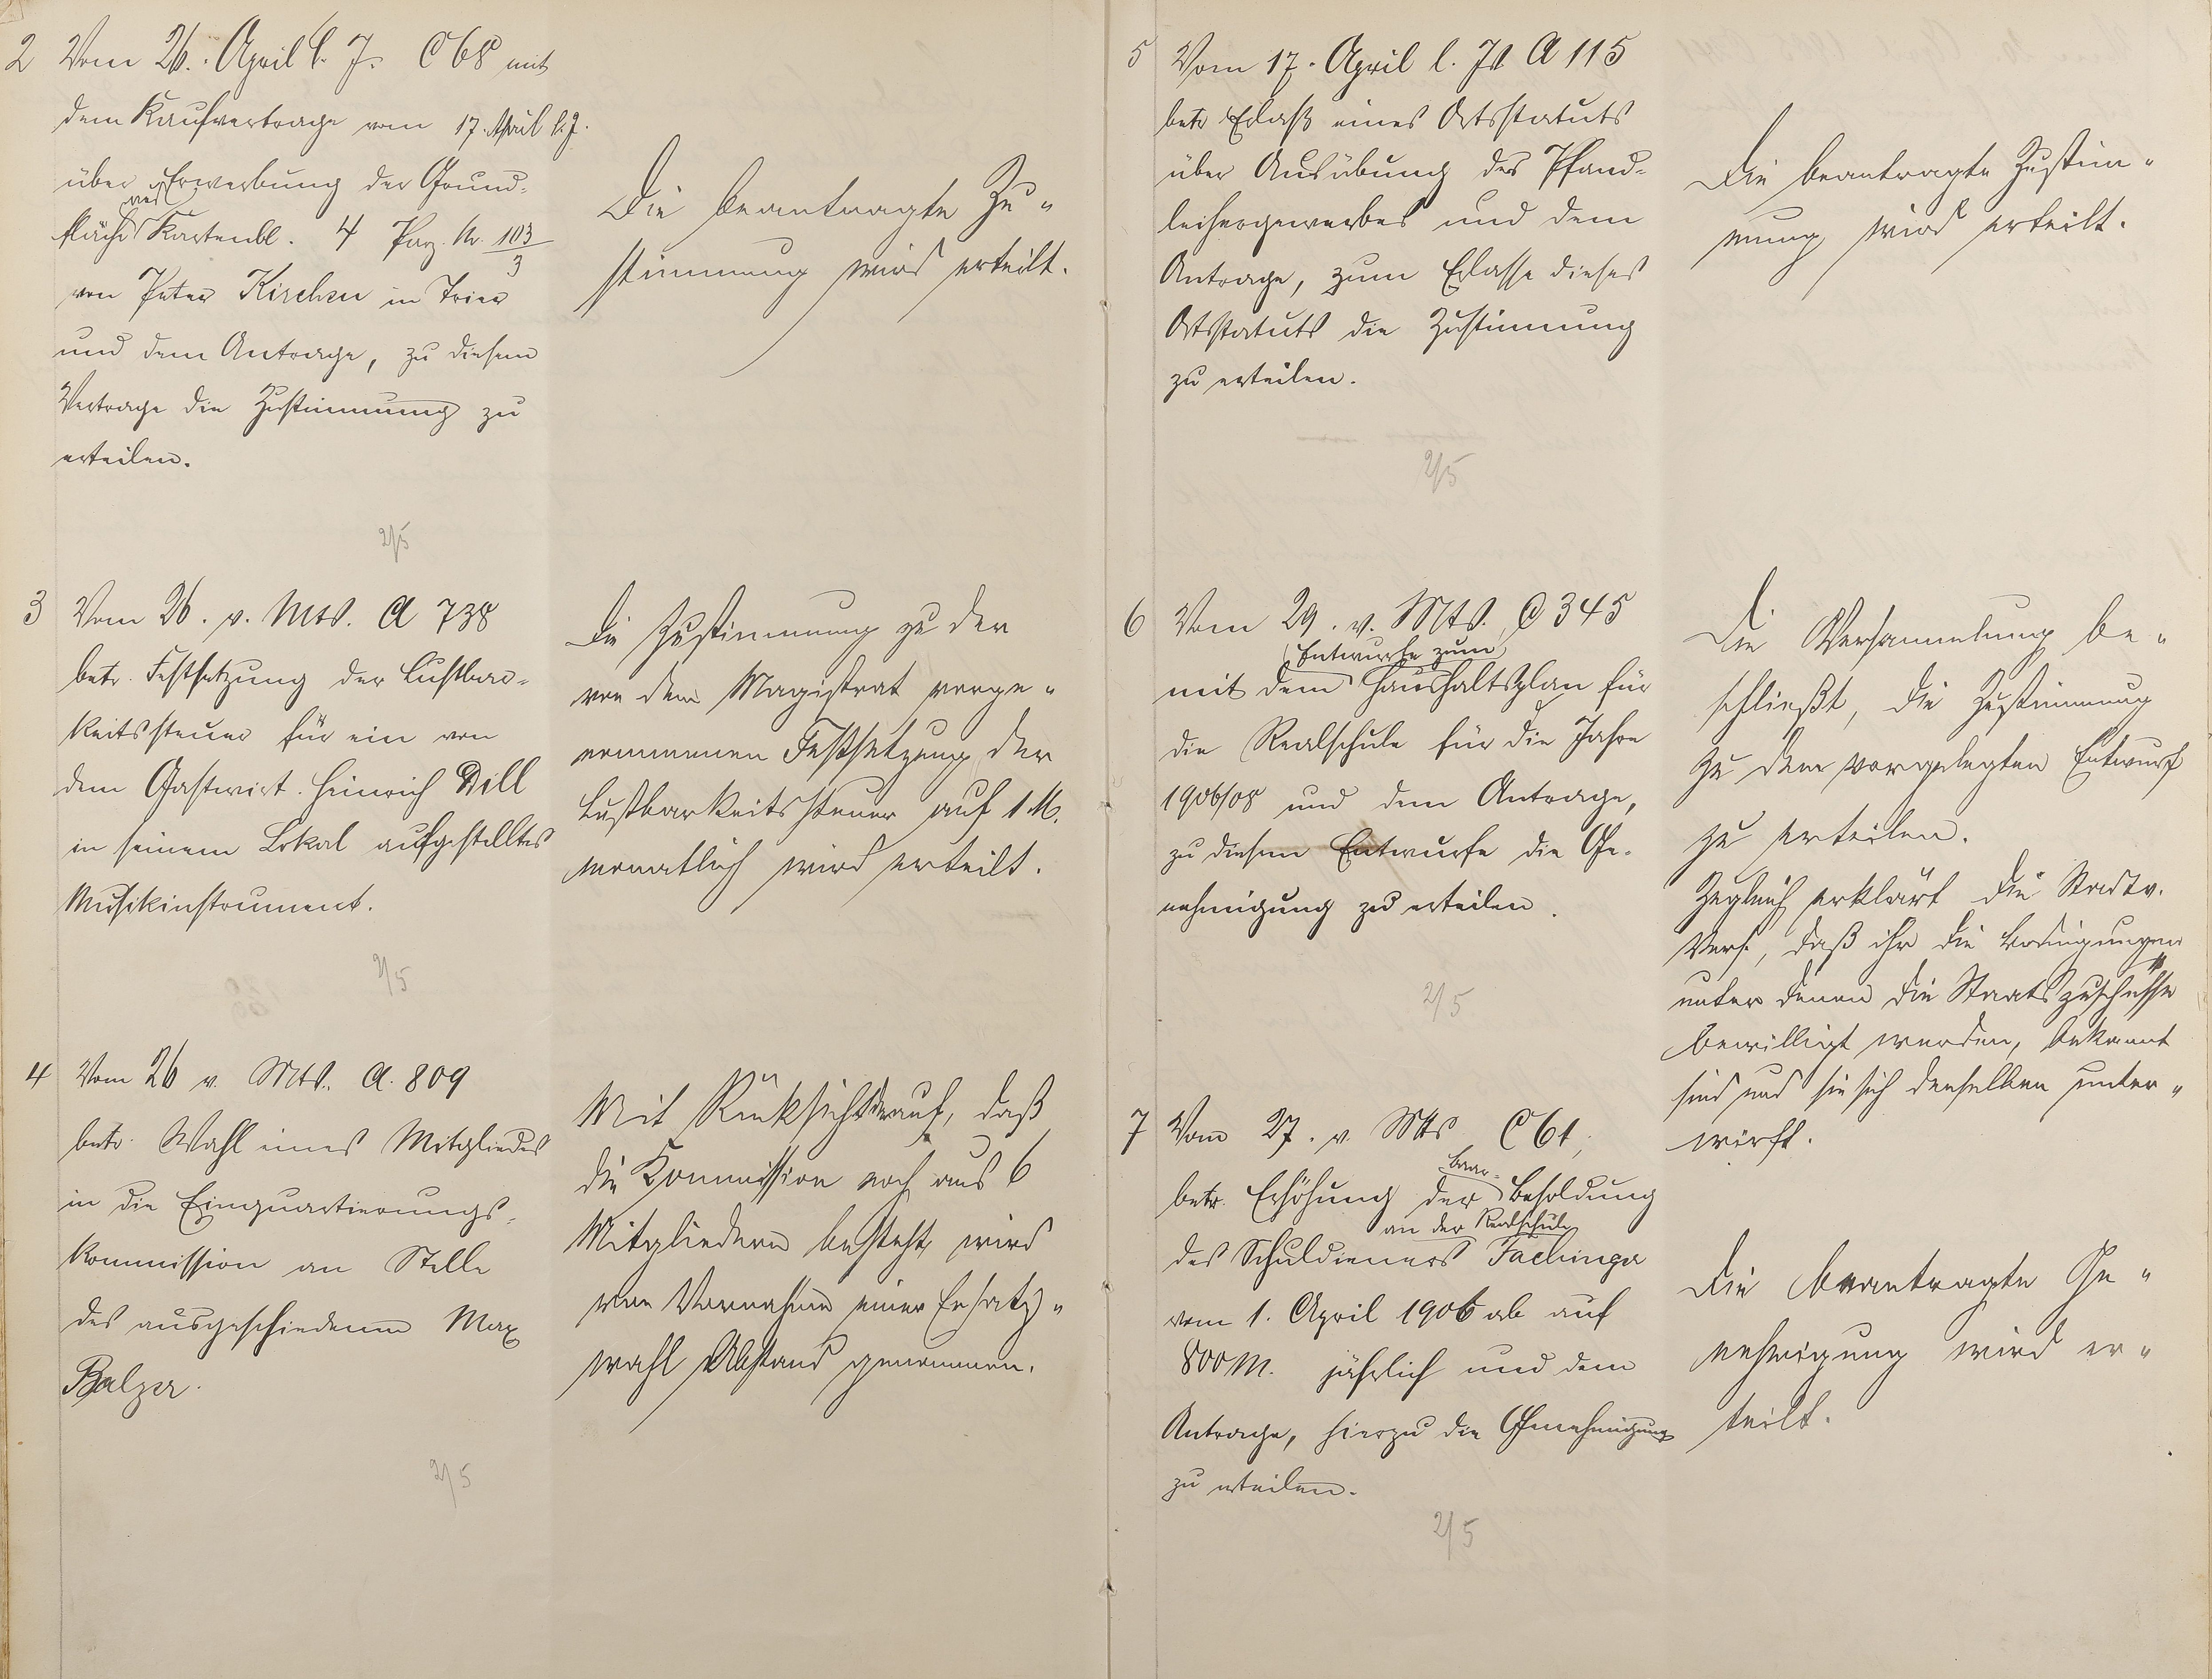 2 Vom 26. April l. J. C 68 mit
dem Kaufvertrage vom 17. April l. J.
über Erwerbung der Grund-
fläche Kartenbl. 4 Parz. Nr. 103/3
von Peter Kirchen in Trier
und dem Antrage, zu diesem
Vertrage die Zustimmung zu
erteilen.
2/5
Die beantragte Zu-
stimmung wird erteilt.
3 Vom 26. v. Mts. A 738
betr. Festsetzung der Lustbar-
keitssteuer für ein von
dem Gastwirt Heinrich Dill
in seinem Lokal aufgestelltes
Musikinstrument.
2/5
Die Zustimmung zu der
von dem Magistrat vorge-
nommenen Festsetzung der
Lustbarkeitssteuer auf 1 M.
monatlich wird erteilt.
4 Vom 26 v. Mts. A. 809
betr. Wahl eines Mitgliedes
in die Einquartierungs-
kommission an Stelle
des ausgeschiedenen Max
Balzer.
2/5
Mit Rücksicht darauf, daß
die Kommission noch aus 6
Mitgliedern besteht, wird
von Vornahme einer Ersatz-
wahl Abstand genommen.
5 Vom 17. April l. Js A 115
betr Erlaß eines Ortsstatuts
über Ausübung des Pfand-
leihergewerbes und dem
Antrage, zum Erlasse dieses
Ortsstatuts die Zustimmung
zu erteilen.
2/5
Die beantragte Zustim-
mung wird erteilt.
6 Vom 29. v. Mts. C 345
Entwurfe zum
mit dem Haushaltsplan für
die Realschule für die Jahre
1906/08 und dem Antrage,
zu diesem Entwurfe die Ge-
nehmigung zu erteilen.
2/5
Die Versammlung be-
schließt, die Zustimmung
zu dem vorgelegten Entwurf
zu erteilen.
Zugleich erklärt die Stadtv.
Vers., daß ihr die Bedingungen
unter denen die Staatszuschüsse
bewilligt werden, bekannt
sind und sie sich denselben unter-
wirft.
7 Vom 27. v. Mts C 61,
baar-
betr. Erhöhung der Besoldung
an der Realschule
des Schuldieners Fachinger
vom 1. April 1906 ab auf
800 M. jährlich und dem
Antrage, hierzu die Genehmigung
zu erteilen.
2/5
Die beantragte Ge-
nehmigung wird er-
teilt.